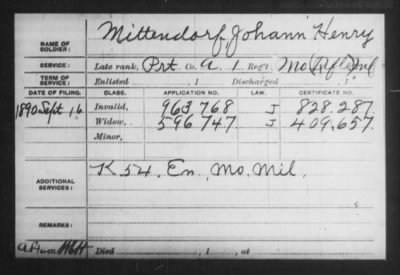 NAME OF SOLDIER: Mittendorf, Johann Henry
SERVICE: Late rank, Prt Co. A, 1 Reg't Mo Inf
TERM OF SERVICE: Enlisted , 1 Discharged , 1
DATE OF FILING. CLASS. APPLICATION NO. LAW. CERTIFICATE NO.
1890 Sept 16 Invalid, 963768 J 828.287
Widow, 596747 J 409.657
Minor,
ADDITIONAL SERVICES: K 54, En. Mo. Mil.
REMARKS:
Died , 1 , at